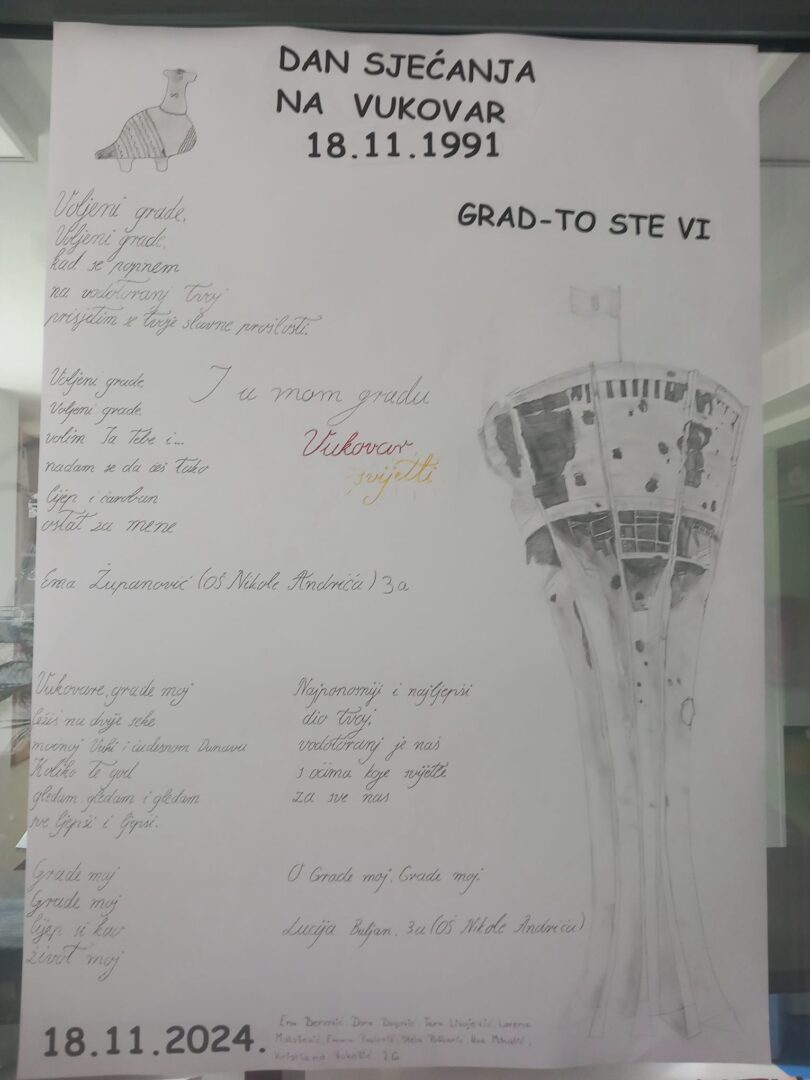 DAN SJEĆANJA
NA VUKOVAR
18.11.1991
GRAD-TO STE VI
Voljeni grade,
Voljeni grade,
kad se popnem
na vodotoranj tvoj
prisjetim se tvoje slavne prošlosti.
Voljeni grade,
Voljeni grade,
volim Ja Tebe i...
nadam se da ćeš tako
lijep i čaroban
ostat za mene
Ema Županović (OŠ Nikole Andrića) 3a
I u mom gradu
Vukovar
svijetli
Vukovare, grade moj
ležiš na dvije reke
moćnoj Vuki i čudesnom Dunavu
Koliko te god
gledam, gledam i gledam
sve ljepši i ljepši.
Grade moj
Grade moj
lijep si kao
život moj
Najponosniji i najljepši
dio tvoj,
vodotoranj je naš
s očima koje svijetle
za sve nas
O Grade moj, Grade moj.
Lucija Buljan, 3a (OŠ Nikole Andrića)
18.11.2024.
Ema Dora Tara Lorena
Emma